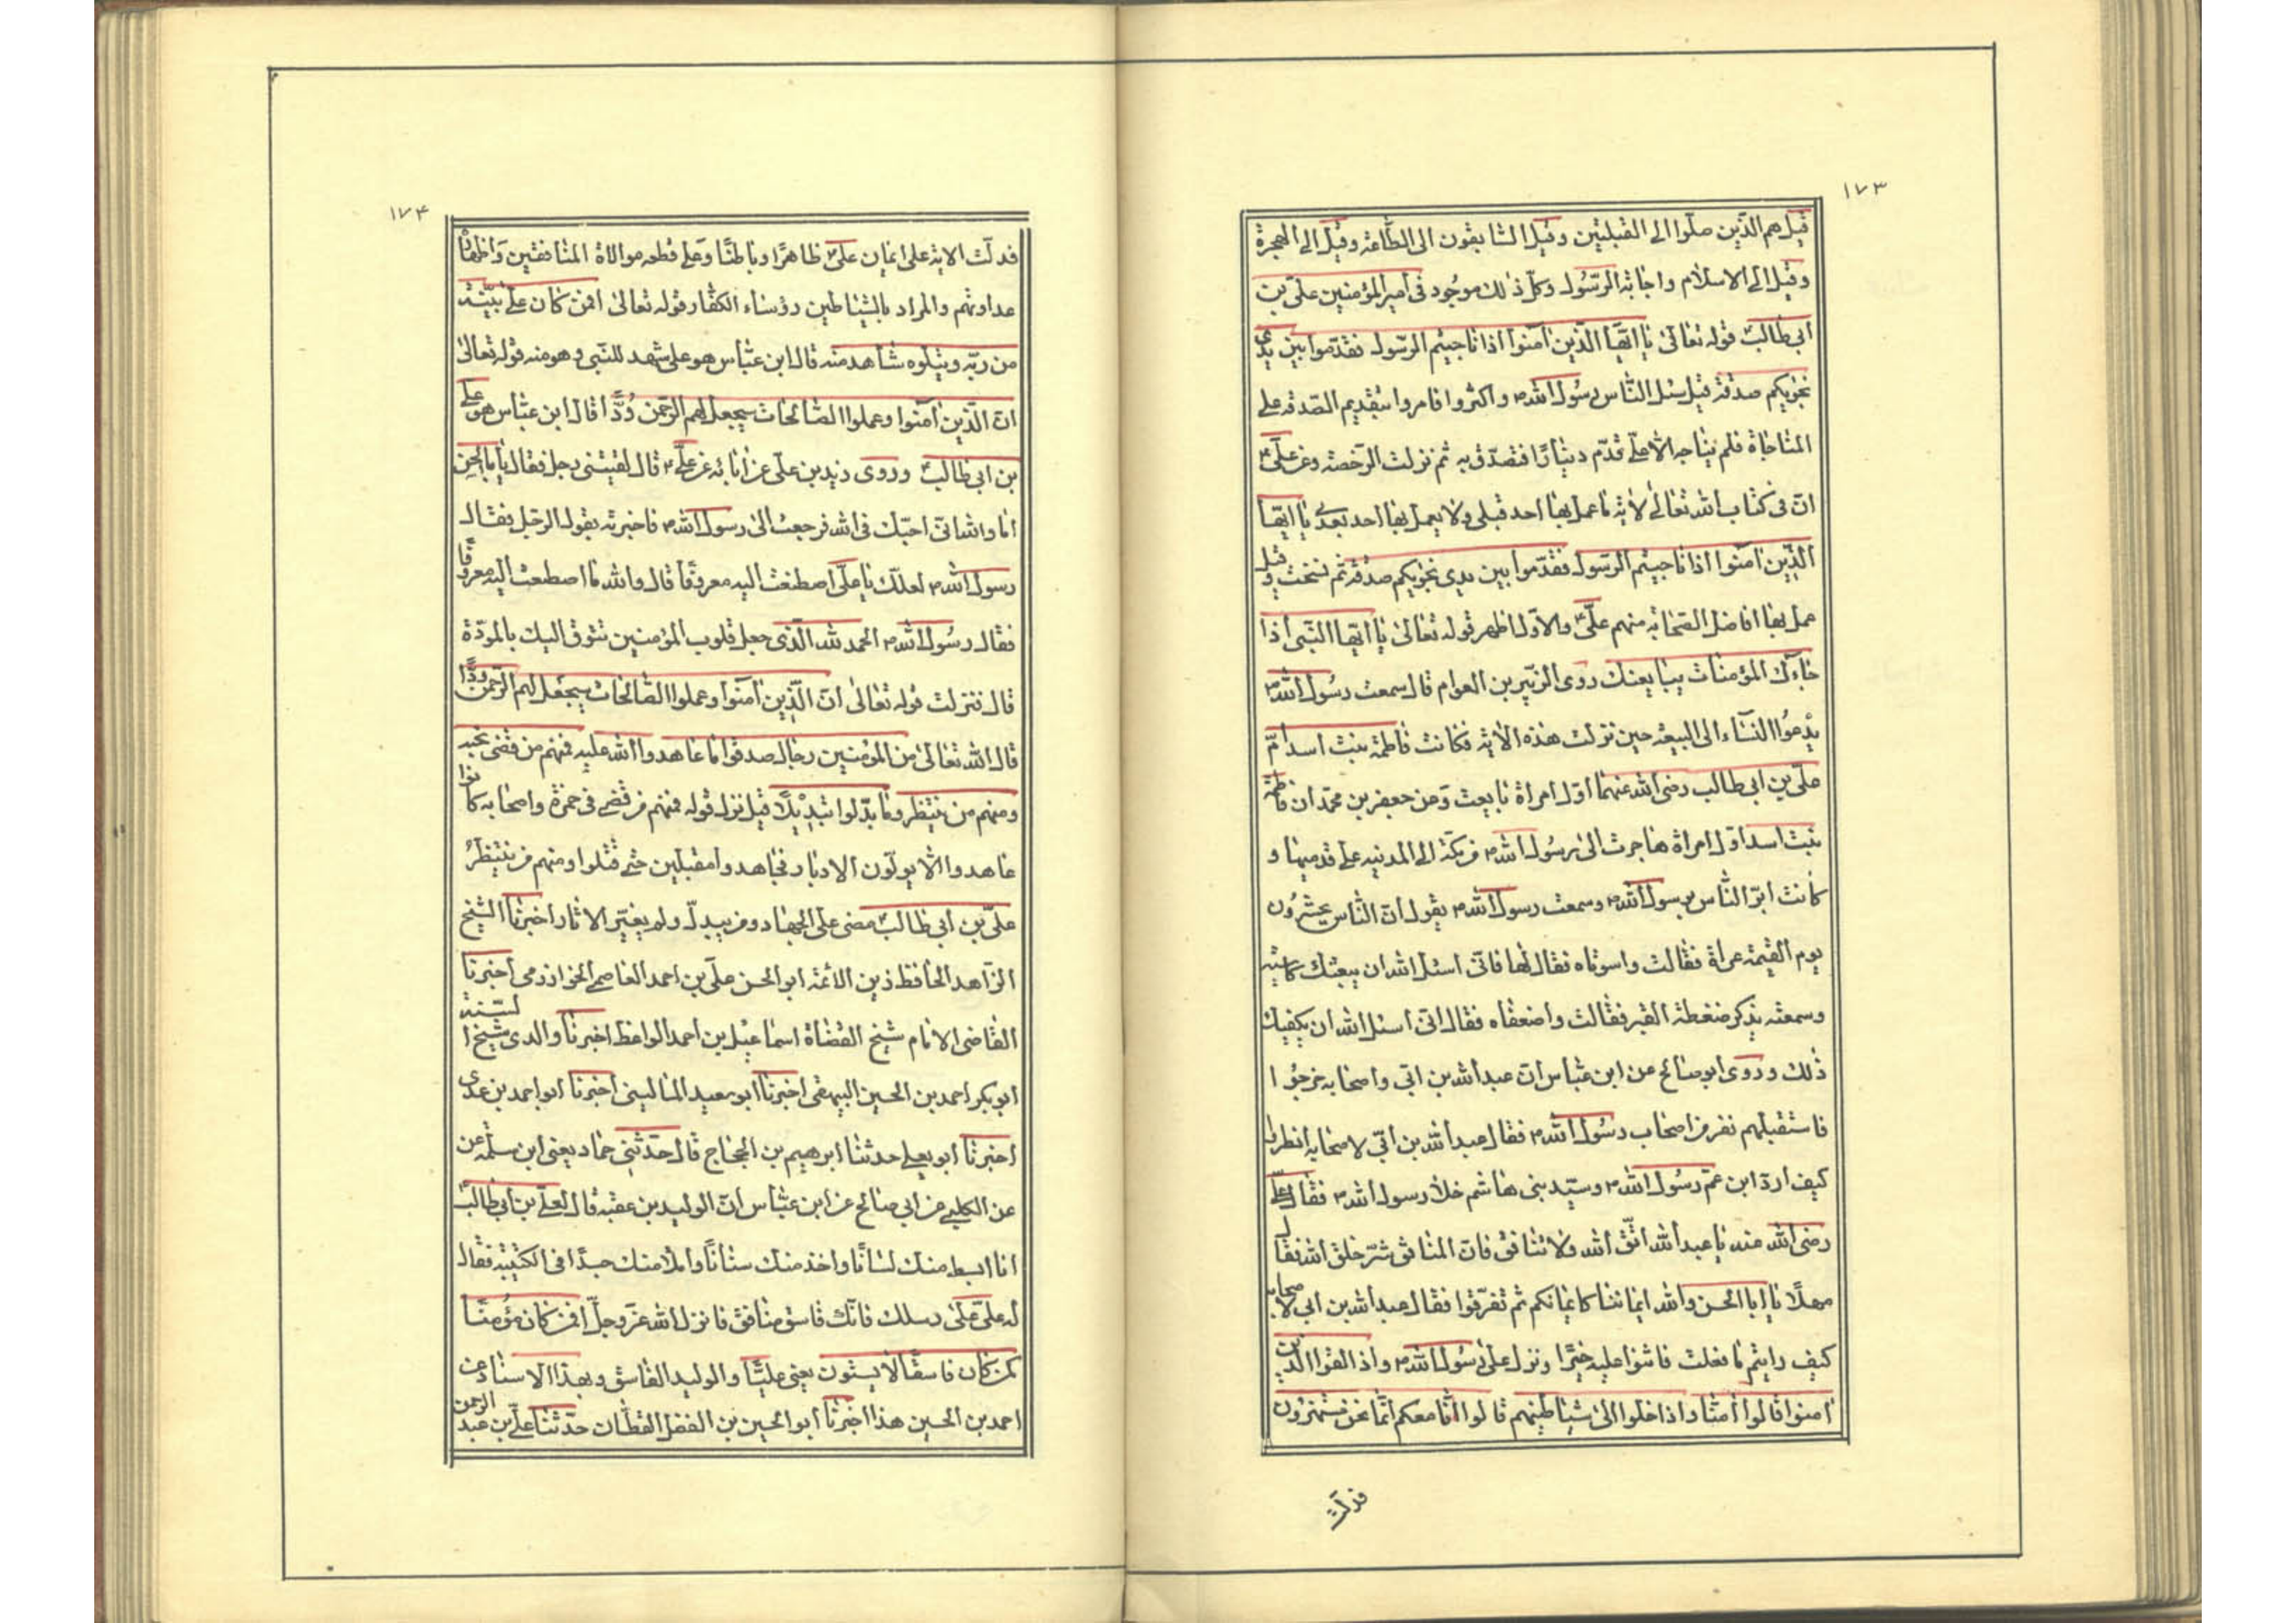 ١٧٣
قيل هم الذين صلوا الى القبلتين وقيل السابقون الى الطاعة وقيل الى الهجرة
وقيل الى الاسلام واجابة الرسول وكل ذلك موجود فى امير المؤمنين على بن
ابى طالب قوله تعالى يا ايها الذين آمنوا اذا ناجيتم الرسول فقدموا بين يدى
نجويكم صدقة قيل سئل الناس رسول الله ص واكثروا فامروا بتقديم الصدقة على
المناجاة فلم يناجه الا على قدم دينارا فتصدق به ثم نزلت الرخصة وعن على ع
ان فى كتاب الله تعالى لاية ما عمل بها احد قبلى ولا يعمل بها احد بعدى يا ايها
الذين آمنوا اذا ناجيتم الرسول فقدموا بين يدى نجويكم صدقة ثم نسخت وقيل
عمل بها افاضل الصحابة منهم على ع والاول اظهر قوله تعالى يا ايها النبى اذا
جاءك المؤمنات يبايعنك روى الزبير بن العوام قال سمعت رسول الله ص
يدعوا النساء الى البيعة حين نزلت هذه الاية فكانت فاطمة بنت اسد ام
على بن ابى طالب رضى الله عنهما اول امراة بايعت وعن جعفر بن محمد ان فاطمة
بنت اسد اول امراة هاجرت الى رسول الله ص من مكة الى المدينة على قدميها و
كانت ابر الناس برسول الله ص وسمعت رسول الله ص يقول ان الناس يحشرون
يوم القيمة عراة فقالت واسوتاه فقال لها فانى اسئل الله ان يبعثك كاسية
وسمعته يذكر ضغطة القبر فقالت واضعفاه فقال انى اسئل الله ان يكفيك
ذلك وروى ابو صالح عن ابن عباس ان عبد الله بن ابى واصحابه خرجوا
فاستقبلهم نفر من اصحاب رسول الله ص فقال عبد الله بن ابى لاصحابه انظروا
كيف ارد ابن عم رسول الله ص وسيد بنى هاشم خلا رسول الله ص فقال على
رضى الله عنه يا عبد الله اتق الله ولا تنافق فان المنافق شر خلق الله فقال
مهلا يا ابا الحسن والله ايماننا كايمانكم ثم تفرقوا فقال عبد الله بن ابى لاصحابه
كيف رايتم ما فعلت فاثنوا عليه خيرا ونزل على رسول الله ص واذا لقوا الذين
آمنوا قالوا آمنا واذا خلوا الى شياطينهم قالوا انا معكم انما نحن مستهزؤن
فدلت
١٧۴
فدلت الاية على ايمان على ع ظاهرا وباطنا وعلى قطعه موالاة المنافقين واظهاره
عداوتهم والمراد بالشياطين رؤساء الكفار قوله تعالى افمن كان على بينة
من ربه ويتلوه شاهد منه قال ابن عباس هو على شهد للنبى وهو منه قوله تعالى
ان الذين آمنوا وعملوا الصالحات سيجعل لهم الرحمن ودا قال ابن عباس هو على
بن ابى طالب وروى زيد بن على عن آبائه عن على ع قال لقيتنى رجل فقال يا ابا الحسن
اما والله انى احبك فى الله فرجعت الى رسول الله ص فاخبرته بقول الرجل فقال
رسول الله ص لعلك يا على اصطنعت اليه معروفا قال والله ما اصطنعت اليه معروفا
فقال رسول الله ص الحمد لله الذى جعل قلوب المؤمنين تتوق اليك بالمودة
قال فنزلت قوله تعالى ان الذين آمنوا وعملوا الصالحات سيجعل لهم الرحمن ودا
قال الله تعالى من المؤمنين رجال صدقوا ما عاهدوا الله عليه فمنهم من قضى نحبه
ومنهم من ينتظر وما بدلوا تبديلا قيل نزل قوله فمنهم من قضى فى حمزة واصحابه كانوا
عاهدوا الا يولون الادبار فجاهدوا مقبلين حتى قتلوا ومنهم من ينتظر
على بن ابى طالب مضى على الجهاد ومن يبدل ولم يغير الاثار اخبرنا الشيخ
الزاهد الحافظ زين الائمة ابو الحسن على بن احمد العاصمى الخوارزمى اخبرنا
القاضى الامام شيخ القضاة اسماعيل بن احمد الواعظ اخبرنا والدى شيخ السنة
ابو بكر احمد بن الحسين البيهقى اخبرنا ابو سعيد المالينى اخبرنا ابو احمد بن عدى
اخبرنا ابو يعلى حدثنا ابرهيم بن الحجاج قال حدثنى حماد يعنى ابن سلمة عن
عن الكلبى عن ابى صالح عن ابن عباس ان الوليد بن عقبة قال لعلى بن ابى طالب
انا ابسط منك لسانا واخذ منك سنانا واملأ منك جسدا فى الكتيبة فقال
له على على رسلك فانك فاسق منافق فانزل الله عز وجل افمن كان مؤمنا
كمن كان فاسقا لا يستون يعنى عليا والوليد الفاسق وبهذا الاسناد عن
احمد بن الحسين هذا اخبرنا ابو الحسين بن الفضل القطان حدثنا على بن عبد الرحمن